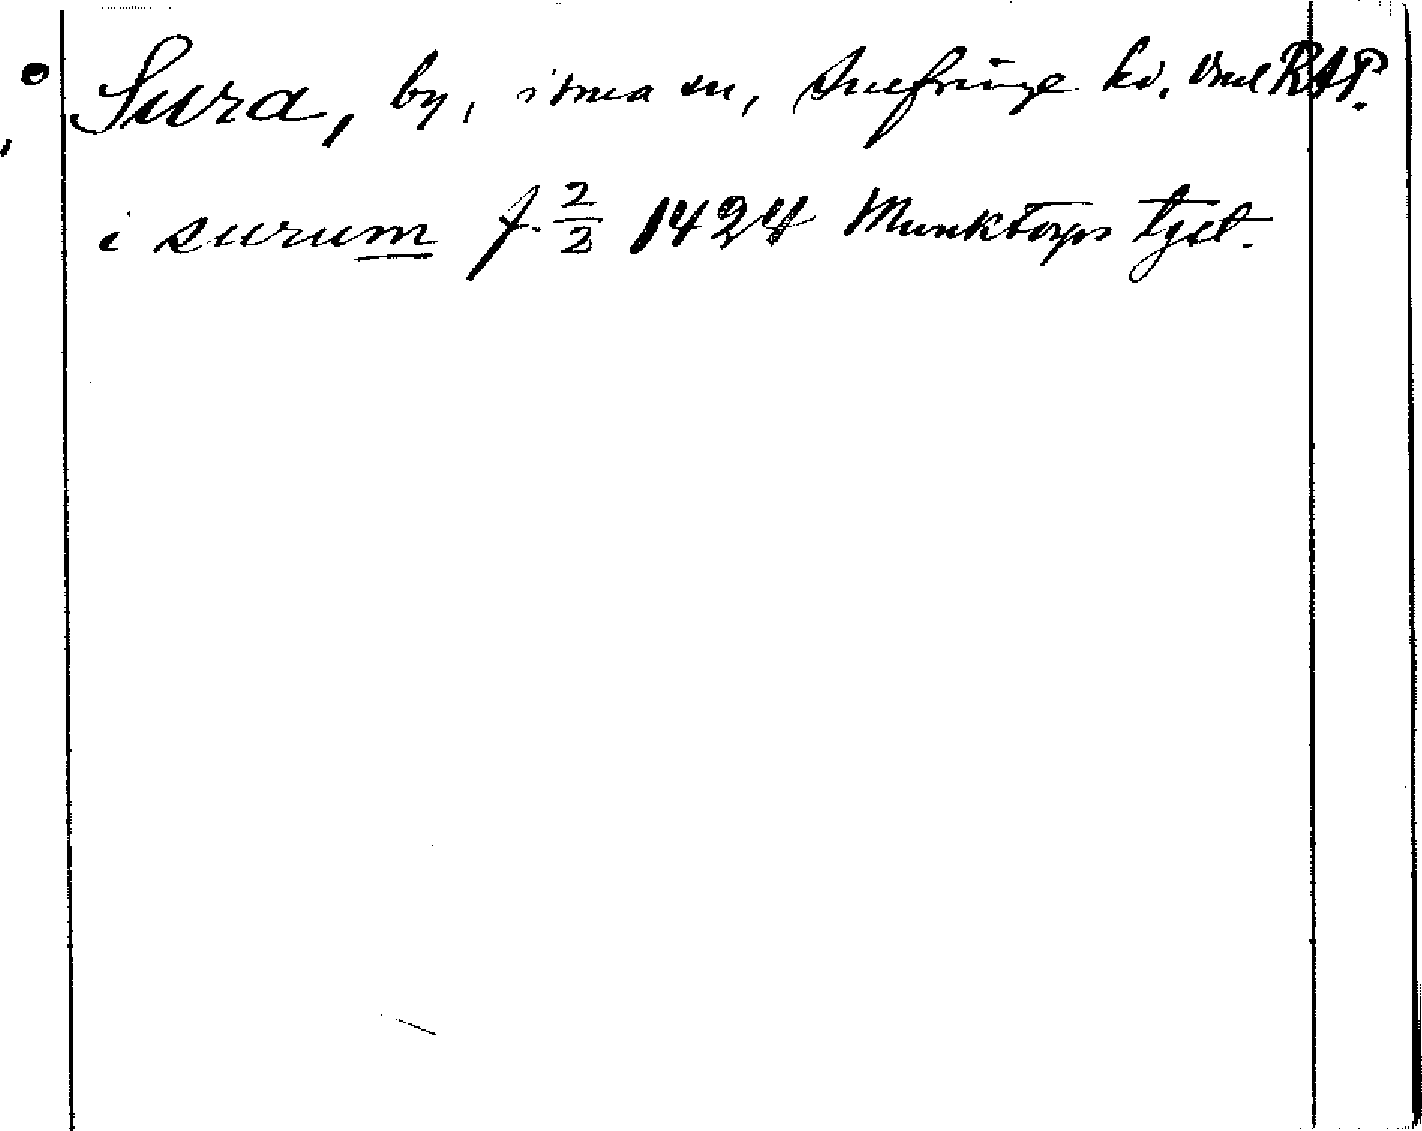 Sura, by, i sma sn, Snefringe hd. Vml RAP.
i surum f. 2/2 1424 Munktorps tjct.